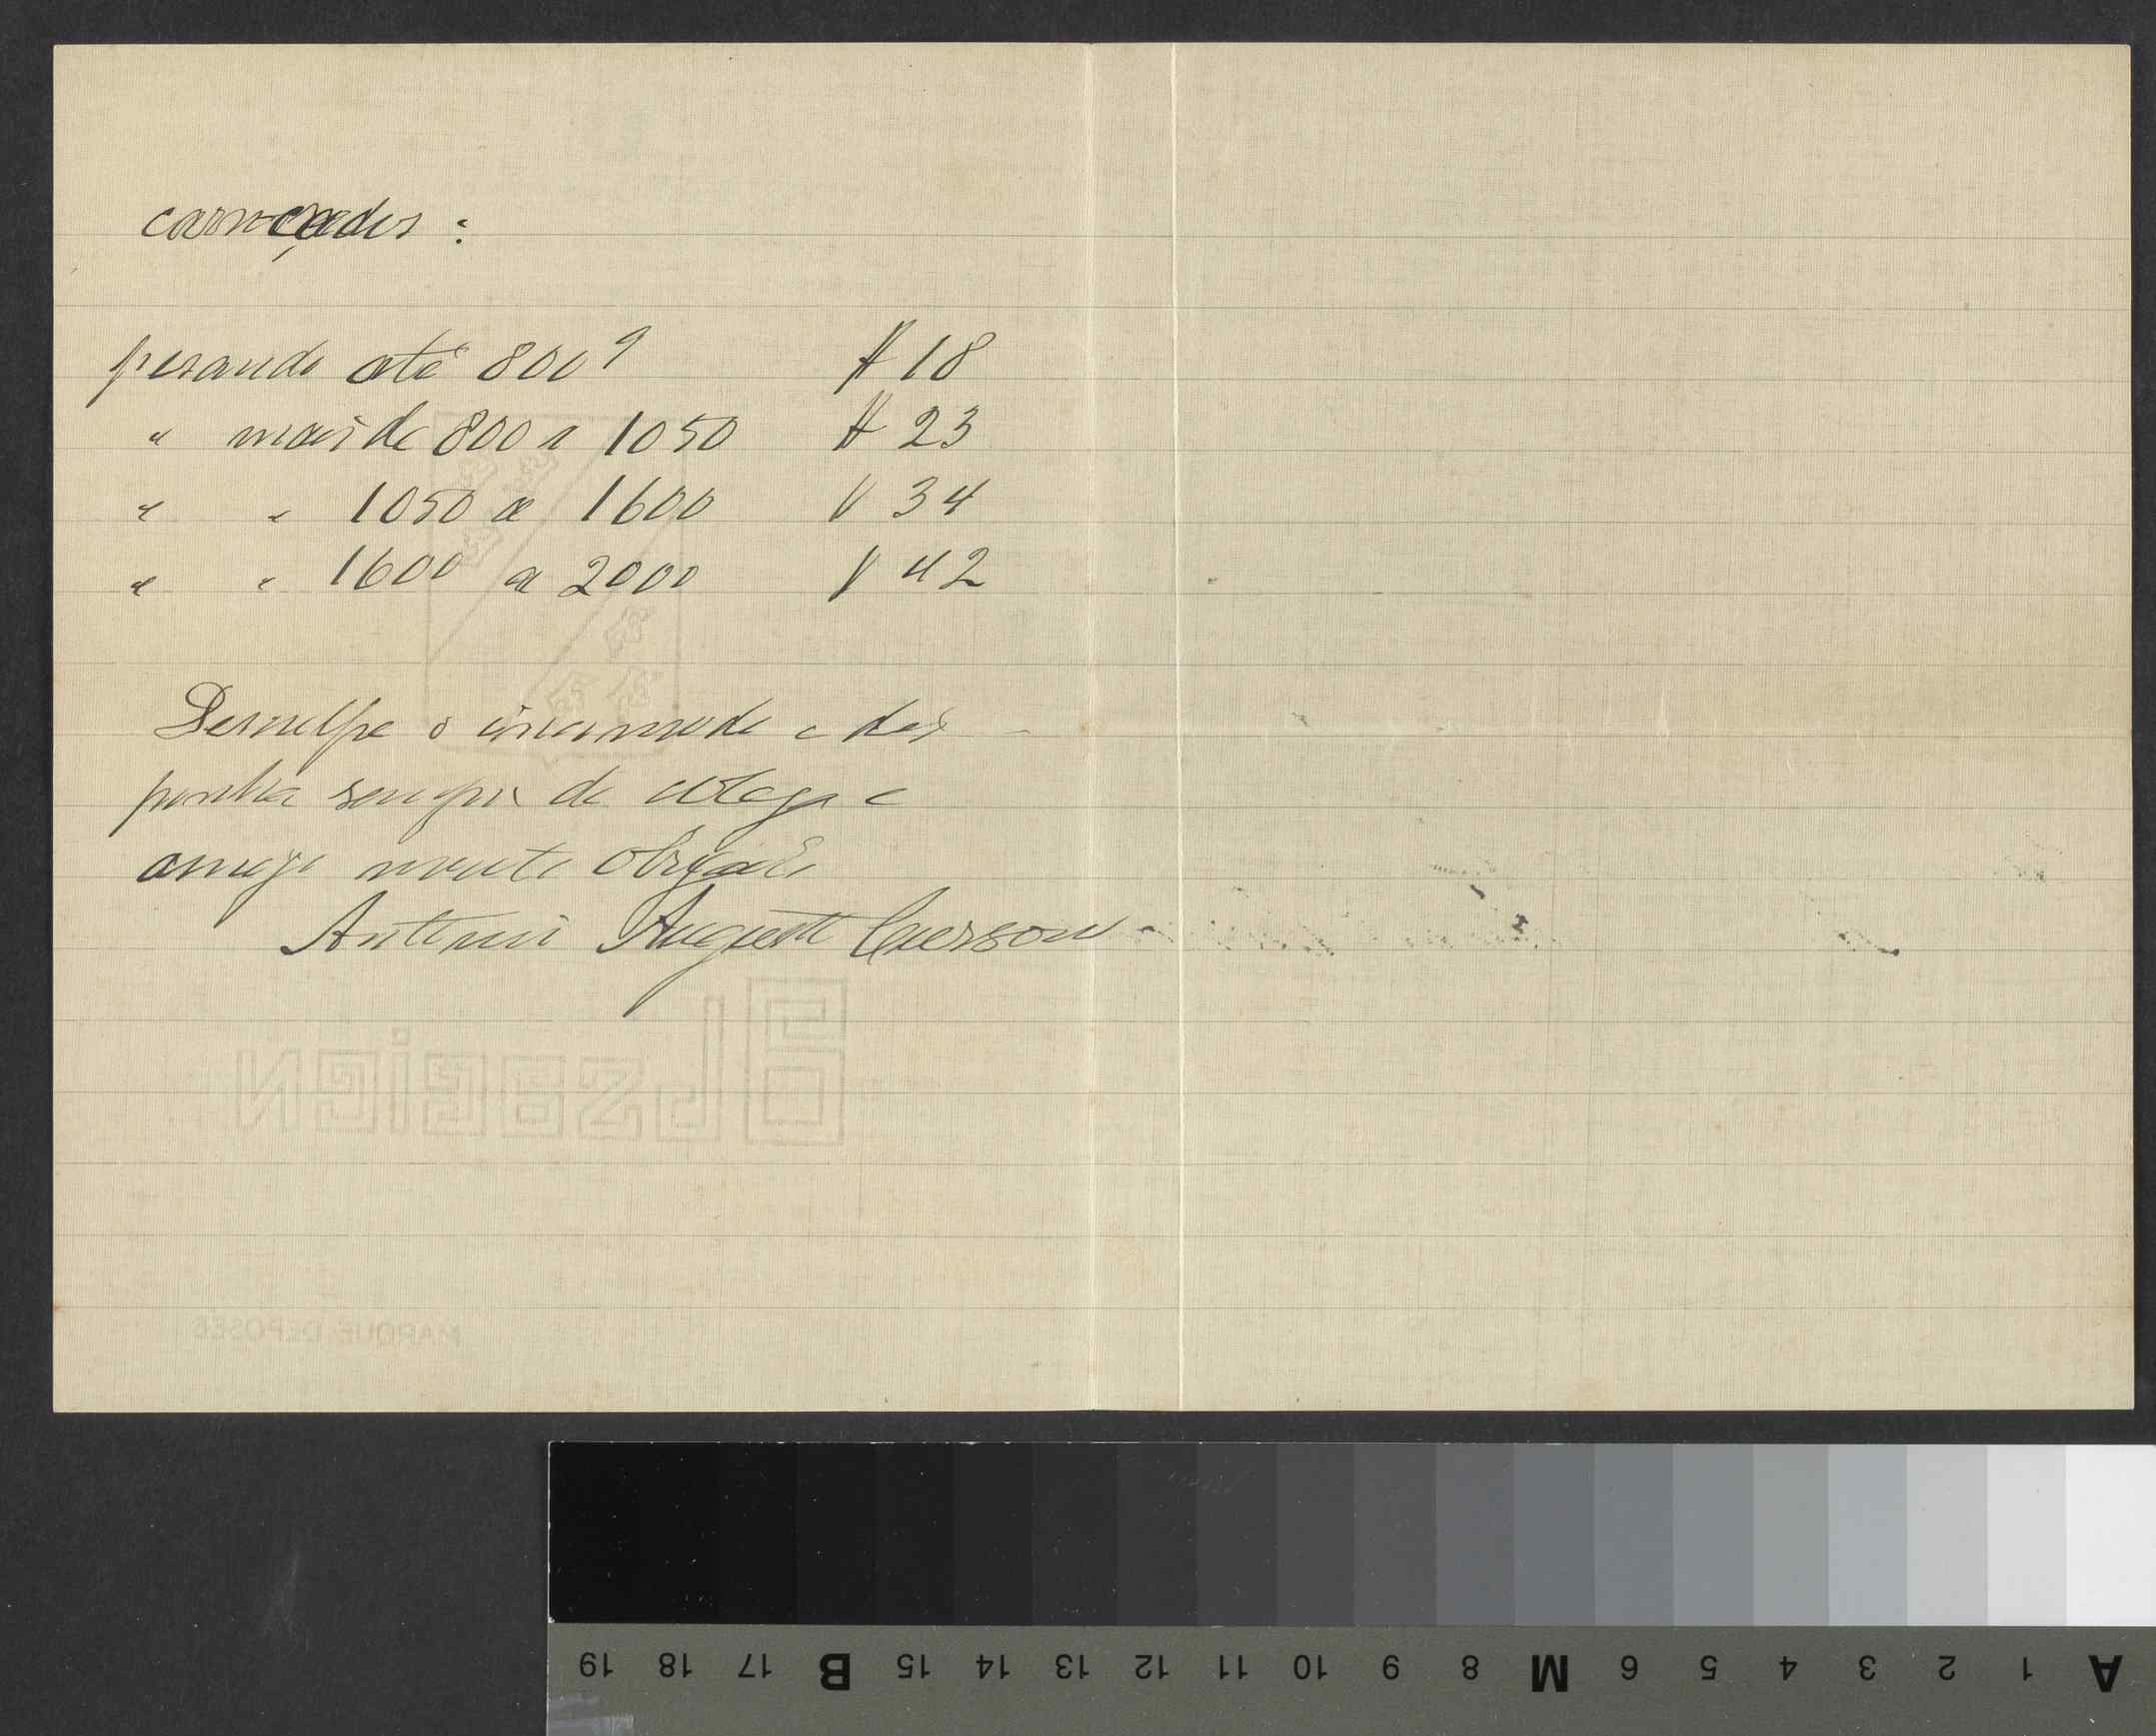 carroçadas :
pesando até 800 g # 18
" mais de 800 a 1050 # 23
" " 1050 a 1600 V 34
" " 1600 a 2000 V 42
Desculpe o incommodo e dis-
ponha sempre do collega e
amigo muito obrigado
Antonio Augusto
MARQUE DÉPOSÉE
19 18 17 B 15 14 13 12 11 10 9 8 M 6 5 4 3 2 1 A